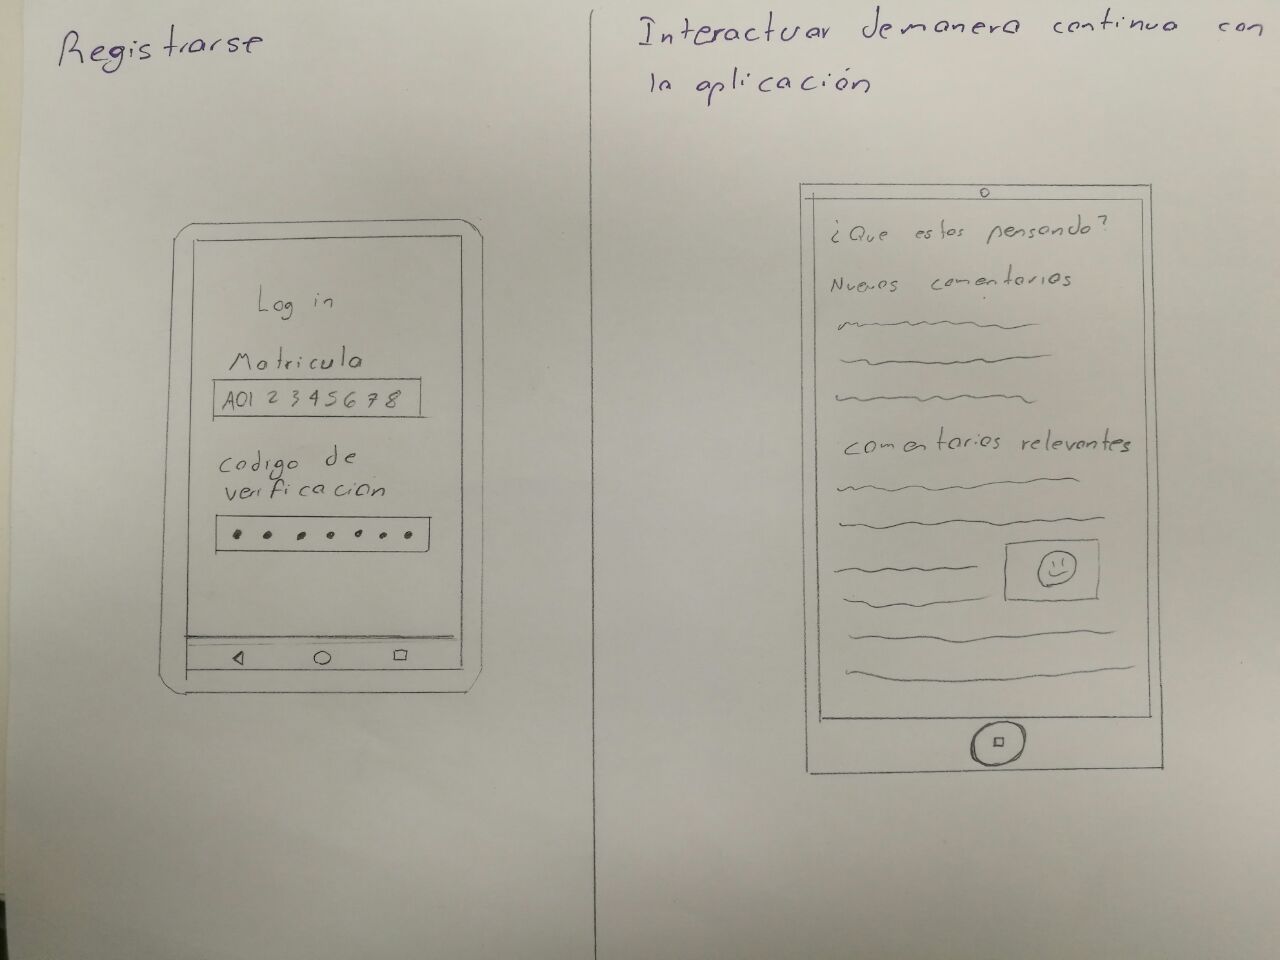 Registrarse
Log in
Matricula
A01 2 3 4 5 6 7 8
codigo de
verificación
Interactuar de manera continua con
la aplicación
¿Que estas pensando?
Nuevos comentarios
comentarios relevantes